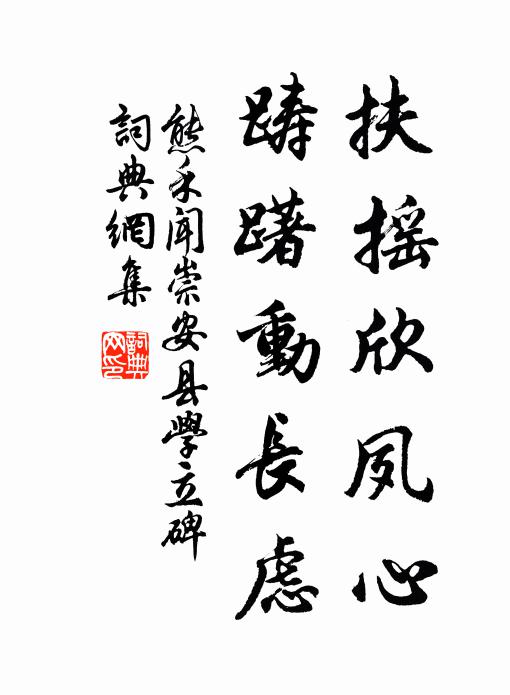 扶搖欣夙心
踌躇動長慮
熊禾聞崇安县學立碑
詞典網集
詞典网印